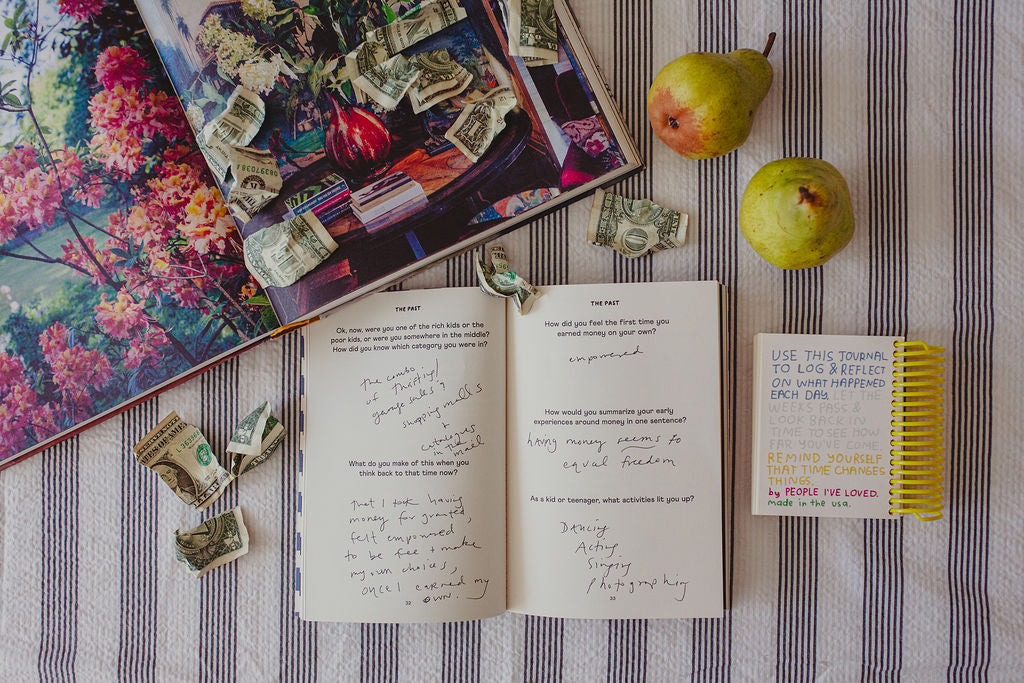 THE PAST
Ok, now, were you one of the rich kids or the
poor kids, or were you somewhere in the middle?
How did you know which category you were in?
the combo
of thrifting/
garage sales &
shopping malls
+
catalogues
in the
mail
What do you make of this when you
think back to that time now?
that I took having
money for granted,
felt empowered
to be fee + make
my own choices,
once I earned my
own.
32
THE PAST
How did you feel the first time you
earned money on your own?
empowered
How would you summarize your early
experiences around money in one sentence?
having money seems to
equal freedom
As a kid or teenager, what activities lit you up?
Dancing
Acting
Singing
photographing
33
USE THIS JOURNAL
TO LOG & REFLECT
ON WHAT HAPPENED
EACH DAY. LET THE
WEEKS PASS &
LOOK BACK IN
TIME TO SEE HOW
FAR YOU'VE COME.
REMIND YOURSELF
THAT TIME CHANGES
THINGS.
by PEOPLE I'VE LOVED.
made in the usa.